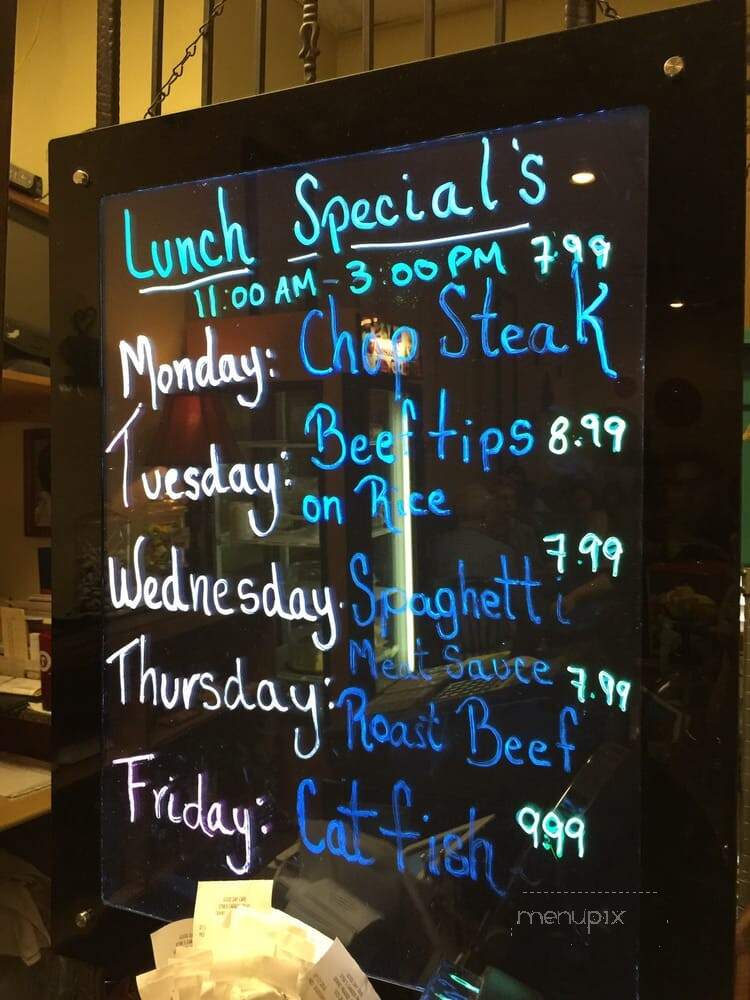 Lunch Special's
11:00 AM - 3:00 PM 7.99
Monday: Chop Steak
Tuesday: Beef tips 8.99
on Rice
7.99
Wednesday. Spaghetti
Meat Sauce
Thursday: Roast Beef 7.99
Friday: Catfish 9.99
menupix